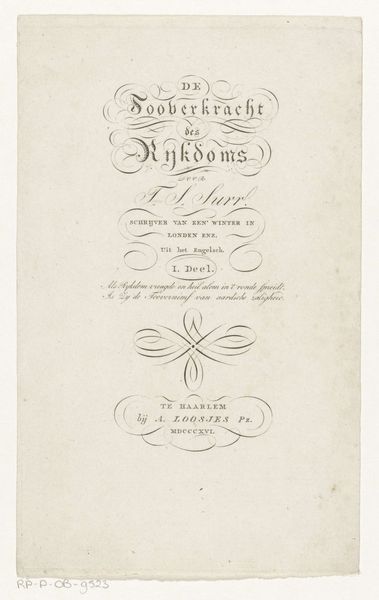 DE
Tooverkracht
des
Rykdoms
door
T. S. Surr.
SCHRIJVER VAN EEN' WINTER IN
LONDEN ENZ.
Uit het Engelsch.
I. Deel.
Als Rijkdom vreugde en heil alom in 't ronde spreidt,
Is Zy de Toovernimf van aardsche zaligheid.
TE HAARLEM
bij A. LOOSJES Pz.
MDCCCXVI.
RP-P-OB-9523